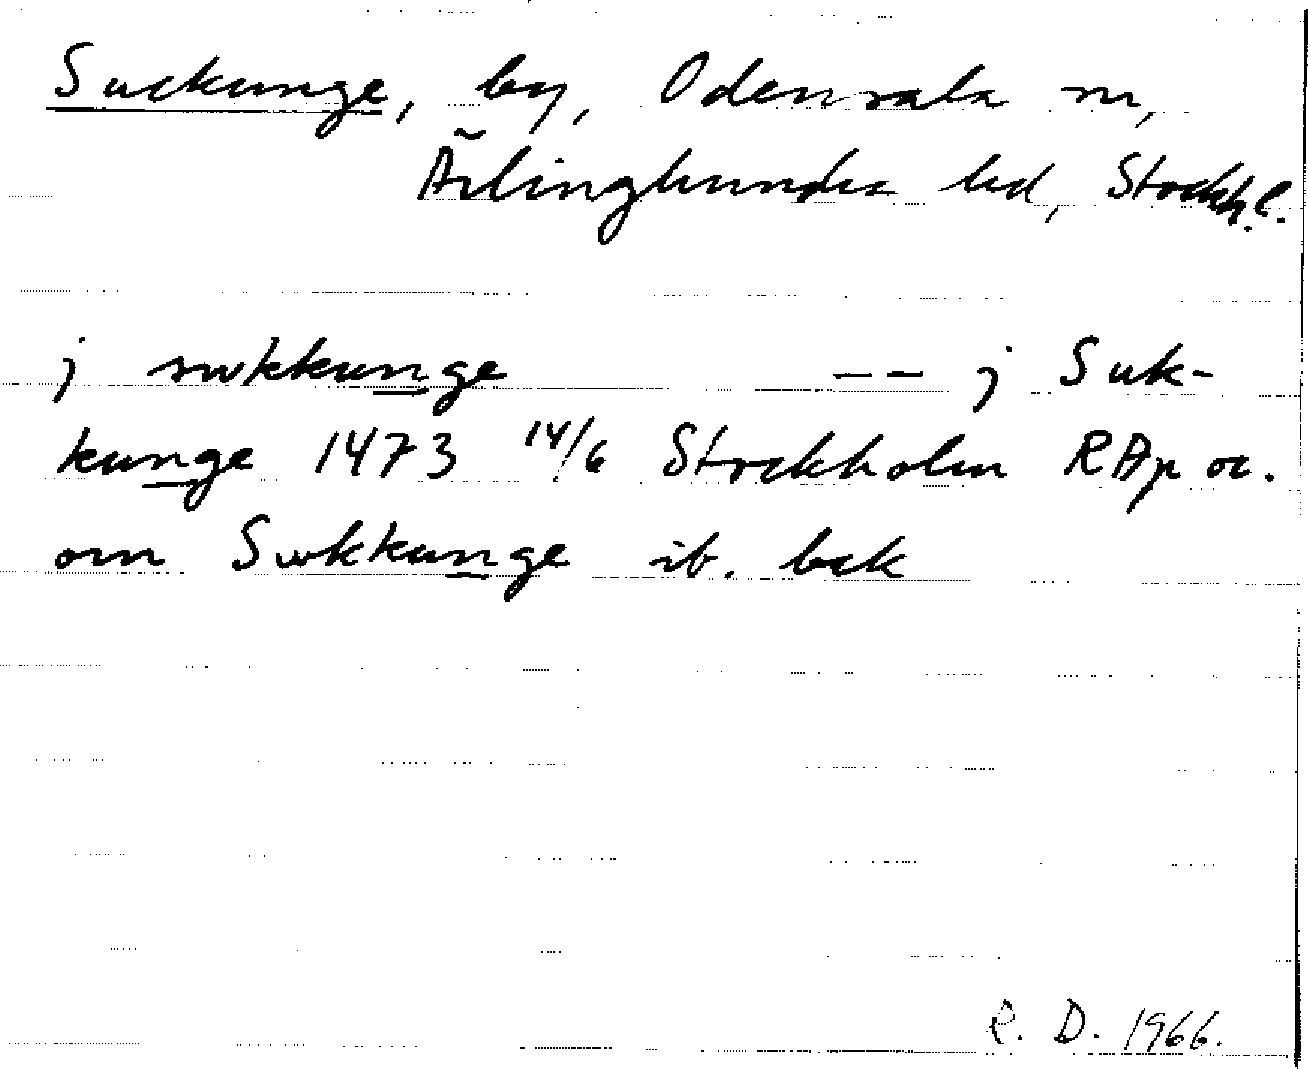 Suckunge, by, Odensala sn,
Ärlinghundra hd, Stockh. l.
j swkkunge -- j Suk-
kunge 1473 14/6 Stockholm RAp or.
om Swkkunge ib. bak
R. D. 1966.